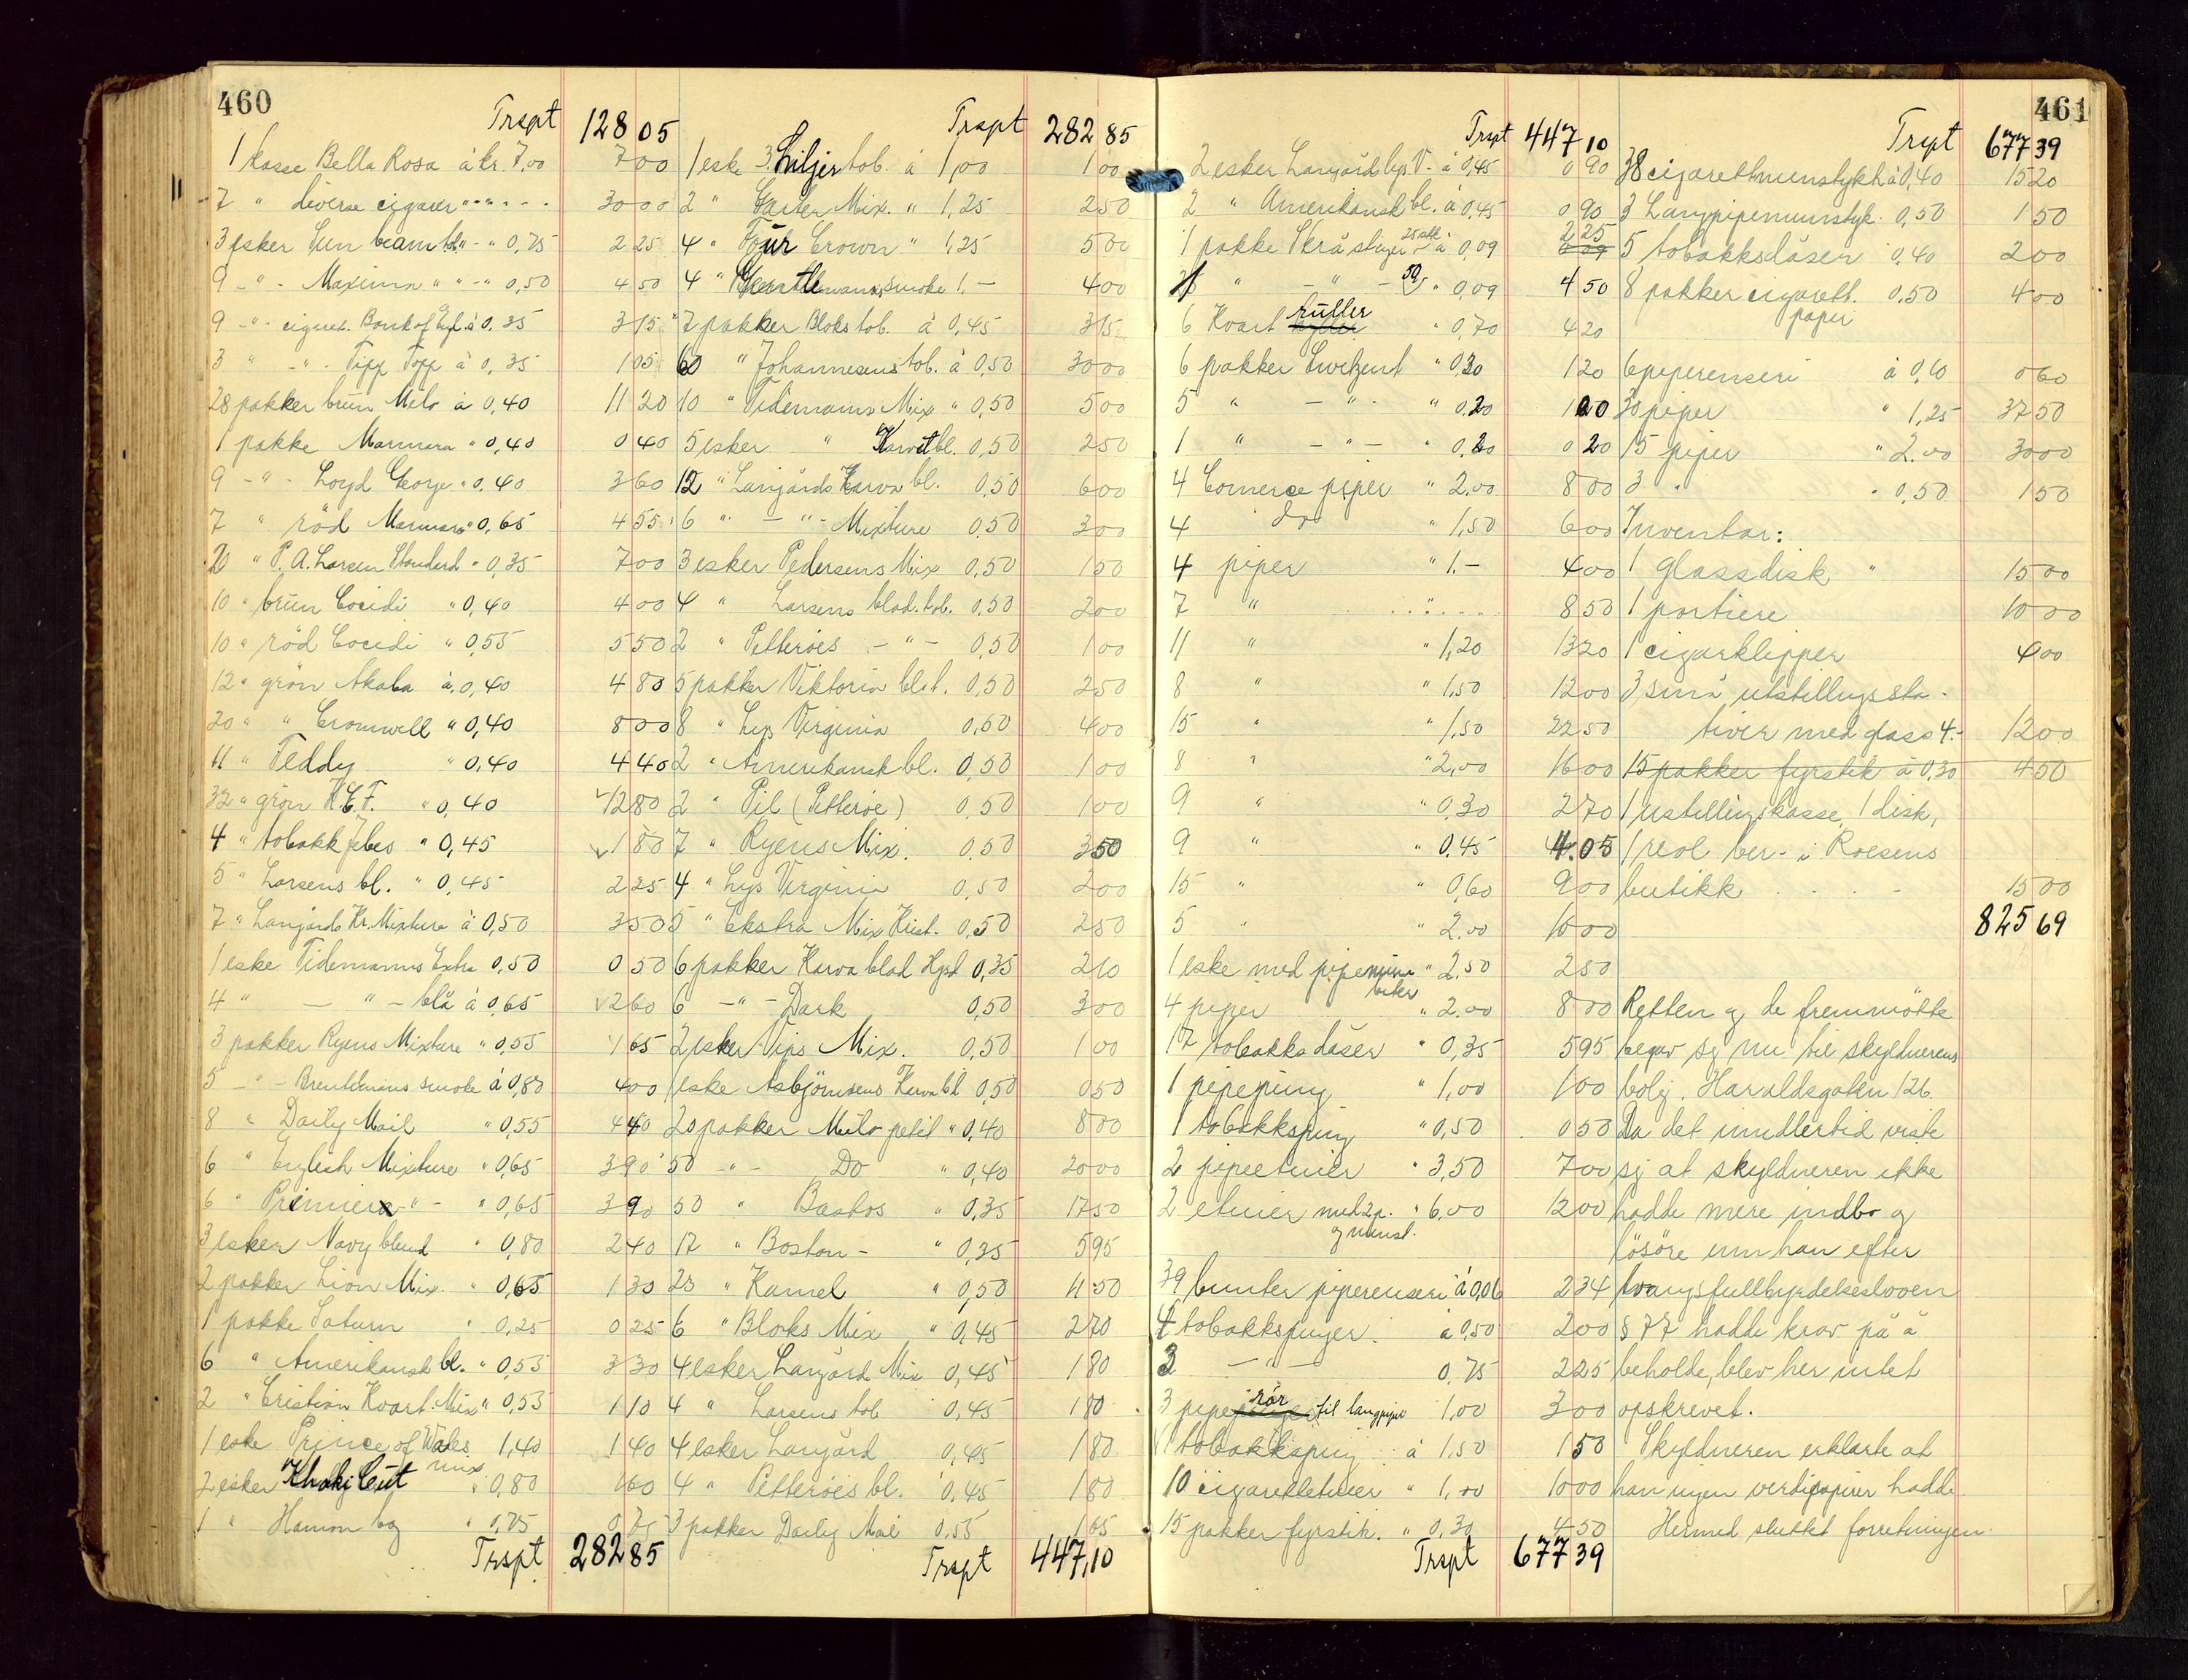 460
Trspt 128 05
1 kasse Bella Rosa à kr. 7,00 7 00
7 " diverse cigarer " " - - - 30 00
3 esker Sun beam tob. - " 0,75 2 25
9 - " - Maxima " " - " 0,50 4 50
9 - " - cigaret. Bank of Egl. à 0,35 3 15
3 " - " - Tipp Topp à 0,35 1 05
28 pakker brun Milo à 0,40 11 20
1 pakke Marmara " 0,40 0 40
9 - " - Loyd George " 0,40 3 60
7 " röd Marmara " 0,65 4 55
20 " P. A. Larsen Standerd " 0,35 7 00
10 " brun Cocidi " 0,40 4 00
10 " röd Cocidi " 0,55 5 50
12 " grön Akaba à 0,40 4 80
20 " " Cromwell " 0,40 8 00
11 " Teddy " 0,40 4 40
32 " grön K.C.F. " 0,40 12 80
4 " tobakk " 0,45 1 80
5 " Larsens bl. " 0,45 2 25
7 " Langårds Kr. Mixture à 0,50 3 50
1 eske Tidemanns Extra 0,50 0 50
4 " - " - blå à 0,65 2 60
3 pakker Ryens Mixture " 0,55 1 65
5 - " - smoke à 0,80 4 00
8 " Daily Mail " 0,55 4 40
6 " English Mixture " 0,65 3 90
6 " Premiers - " - " 0,65 3 90
3 esker Navy blend " 0,80 2 40
2 pakker Lion Mix. " 0,65 1 30
1 pakke Saturn " 0,25 0 25
6 " Amerikansk bl. " 0,55 3 30
2 " Cristian Kvart Mix " 0,55 1 10
1 eske Prince of Wales 1,40 1 40
2 esker Khaki Cut mix " 0,80 1 60
1 " 0,75 0 75
Trspt 282 85
Trspt 282 85
1 eske 3 Liljer tob. à 1,00 1 00
2 " Garter Mix. " 1,25 2 50
4 " Four Crown " 1,25 5 00
4 " Gentlemans smoke 1. - 4 00
7 pakker Bloks tob. à 0,45 3 15
60 " Johannesens tob. à 0,50 30 00
10 " Tidemanns Mix " 0,50 5 00
5 esker " Karvet bl. 0,50 2 50
12 " Langårds Karva bl. 0,50 6 00
6 " - " - Mixture 0,50 3 00
3 esker Pedersens Mix 0,50 1 50
4 " Larsens blad. tob. 0,50 2 00
2 " Petteröes - " - 0,50 1 00
5 pakker Viktoria bl.t. 0,50 2 50
8 " Lys Virginia 0,50 4 00
2 " Amerikansk bl. 0,50 1 00
2 " Pil (Petteröe) 0,50 1 00
7 " Ryens Mix. 0,50 3 50
4 " Lys Virginia 0,50 2 00
5 " Ekstra Mix Krist. 0,50 2 50
6 pakker Karva blad Hjrd 0,35 2 10
6 - " - Dark 0,50 3 00
2 esker Vips Mix. 0,50 1 00
1 eske Asbjörnsens Karva bl 0,50 0 50
20 pakker Milo petit " 0,40 8 00
50 - " - Do " 0,40 20 00
50 " Bastos " 0,35 17 50
17 " Boston - " 0,35 5 95
23 " Kamel " 0,50 11 50
6 " Bloks Mix " 0,45 2 70
4 esker Langård Mix 0,45 1 80
4 " Larsens tob 0,45 1 80
4 esker Langård 0,45 1 80
4 " Petteröes bl. 0,45 1 80
3 pakker Daily Mail 0,55 1 65
Trspt 447,10
461
Trspt 447 10
2 esker Langård lys V. - à 0,45 0 90
2 " Amerikansk bl. à 0,45 0 90
1 pakke Skrå stanger 25 stk à 0,09 2 25
1 " - " - 50 " 0,09 4 50
6 Kvart ruller " 0,70 4 20
6 pakker " 0,20 1 20
5 " - " - " 0,20 1 00
1 " - " - " 0,20 0 20
4 Comerce piper " 2,00 8 00
4 do " 1,50 6 00
4 piper " 1. - 4 00
7 " . . " . . . . 8 50
11 " " 1,20 13 20
8 " " 1,50 12 00
15 " " 1,50 22 50
8 " " 2,00 16 00
9 " " 0,30 2 70
9 " " 0,45 4.05
15 " " 0,60 9 00
5 " " 2,00 10 00
1 eske med pipemunn " 2,50 2 50
biter
4 piper " 2,00 8 00
17 tobakksdåser " 0,35 5 95
1 pipepung " 1,00 1 00
1 tobakkspung " 0,50 0 50
2 pipeetuier " 3,50 7 00
2 etuier med 2 p. " 6,00 12 00
og munst.
39 bunter piperenseri à 0,06 2 34
4 tobakkspunger. à 0,50 2 00
3 - " - 0,75 2 25
3 piperör til langpiper 1,00 3 00
1 tobakkspung à 1,50 1 50
10 cigarettetuier " 1,00 10 00
15 pakker fyrstik. " 0,30 4 50
Trspt 677 39
Trspt 677 39
38 cigarettmunstykk à 0,40 15 20
3 Langpipemunstyk. 0,50 1 50
5 tobakksdåser 0,40 2 00
8 pakker cigarett. 0,50 4 00
papir
6 piperenseri à 0,10 0 60
30 piper " 1,25 37 50
15 piper " 2,00 30 00
3 " " 0,50 1 50
Inventar:
1 glassdisk " 15 00
1 portiere 10 00
1 cigarklipper 4 00
3 små utstillingssta-
tiver med glass 4.- 12 00
15 pakker fyrstik à 0,30 4 50
1 ustillingskasse, 1 disk,
1 reol ber - i Roesens
butikk . . . - 15 00
825 69
Retten og de fremmötte
begav sig nu til skyldnerens
bolig. Haraldsgaten 126.
Da det imidlertid viste
sig at skyldneren ikke
hadde mere indbo og
lösöre enn han efter
tvangsfullbyrdelsesloven
§ 77 hadde krav på å
beholde, blev her intet
opskrevet.
Skyldneren erklærte at
han ingen verdipapirer hadde.
Hermed sluttet forretningen.